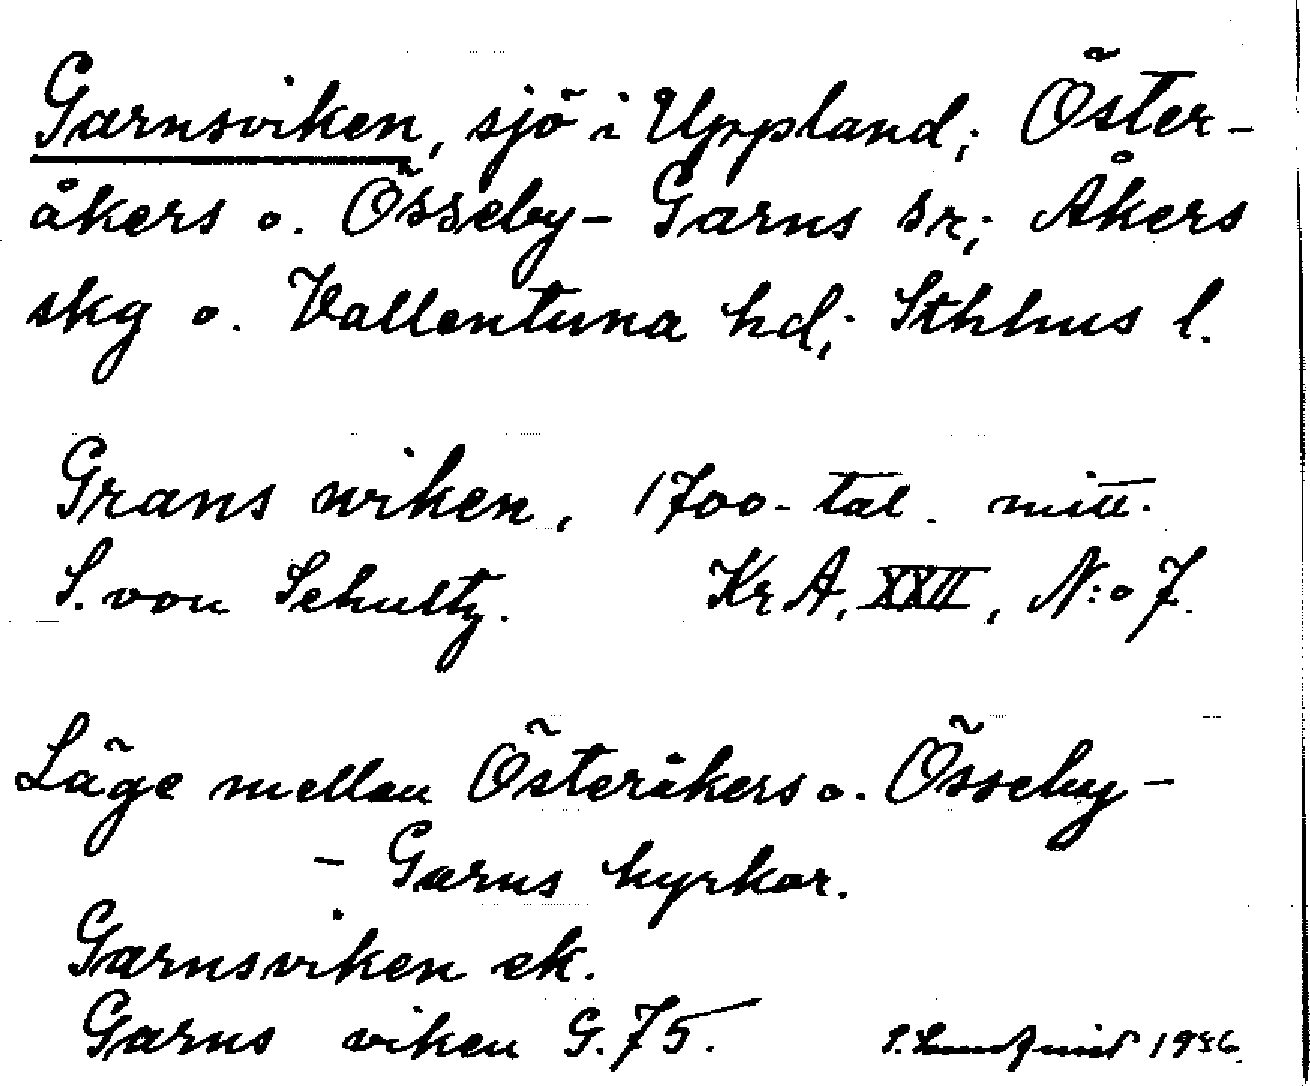 Garnsviken, sjö i Uppland; Öster-
åkers o. Össeby- Garns sr; Åkers
skg o. Vallentuna hd; Sthlms l.
Grans wiken, 1700-tal. mitt.
S. von Schultz. KrA, XXII, N:o 7.
Läge mellan Österåkers o. Össeby-
- Garns kyrkor.
Garnsviken ek.
Garns viken G.75. 1936